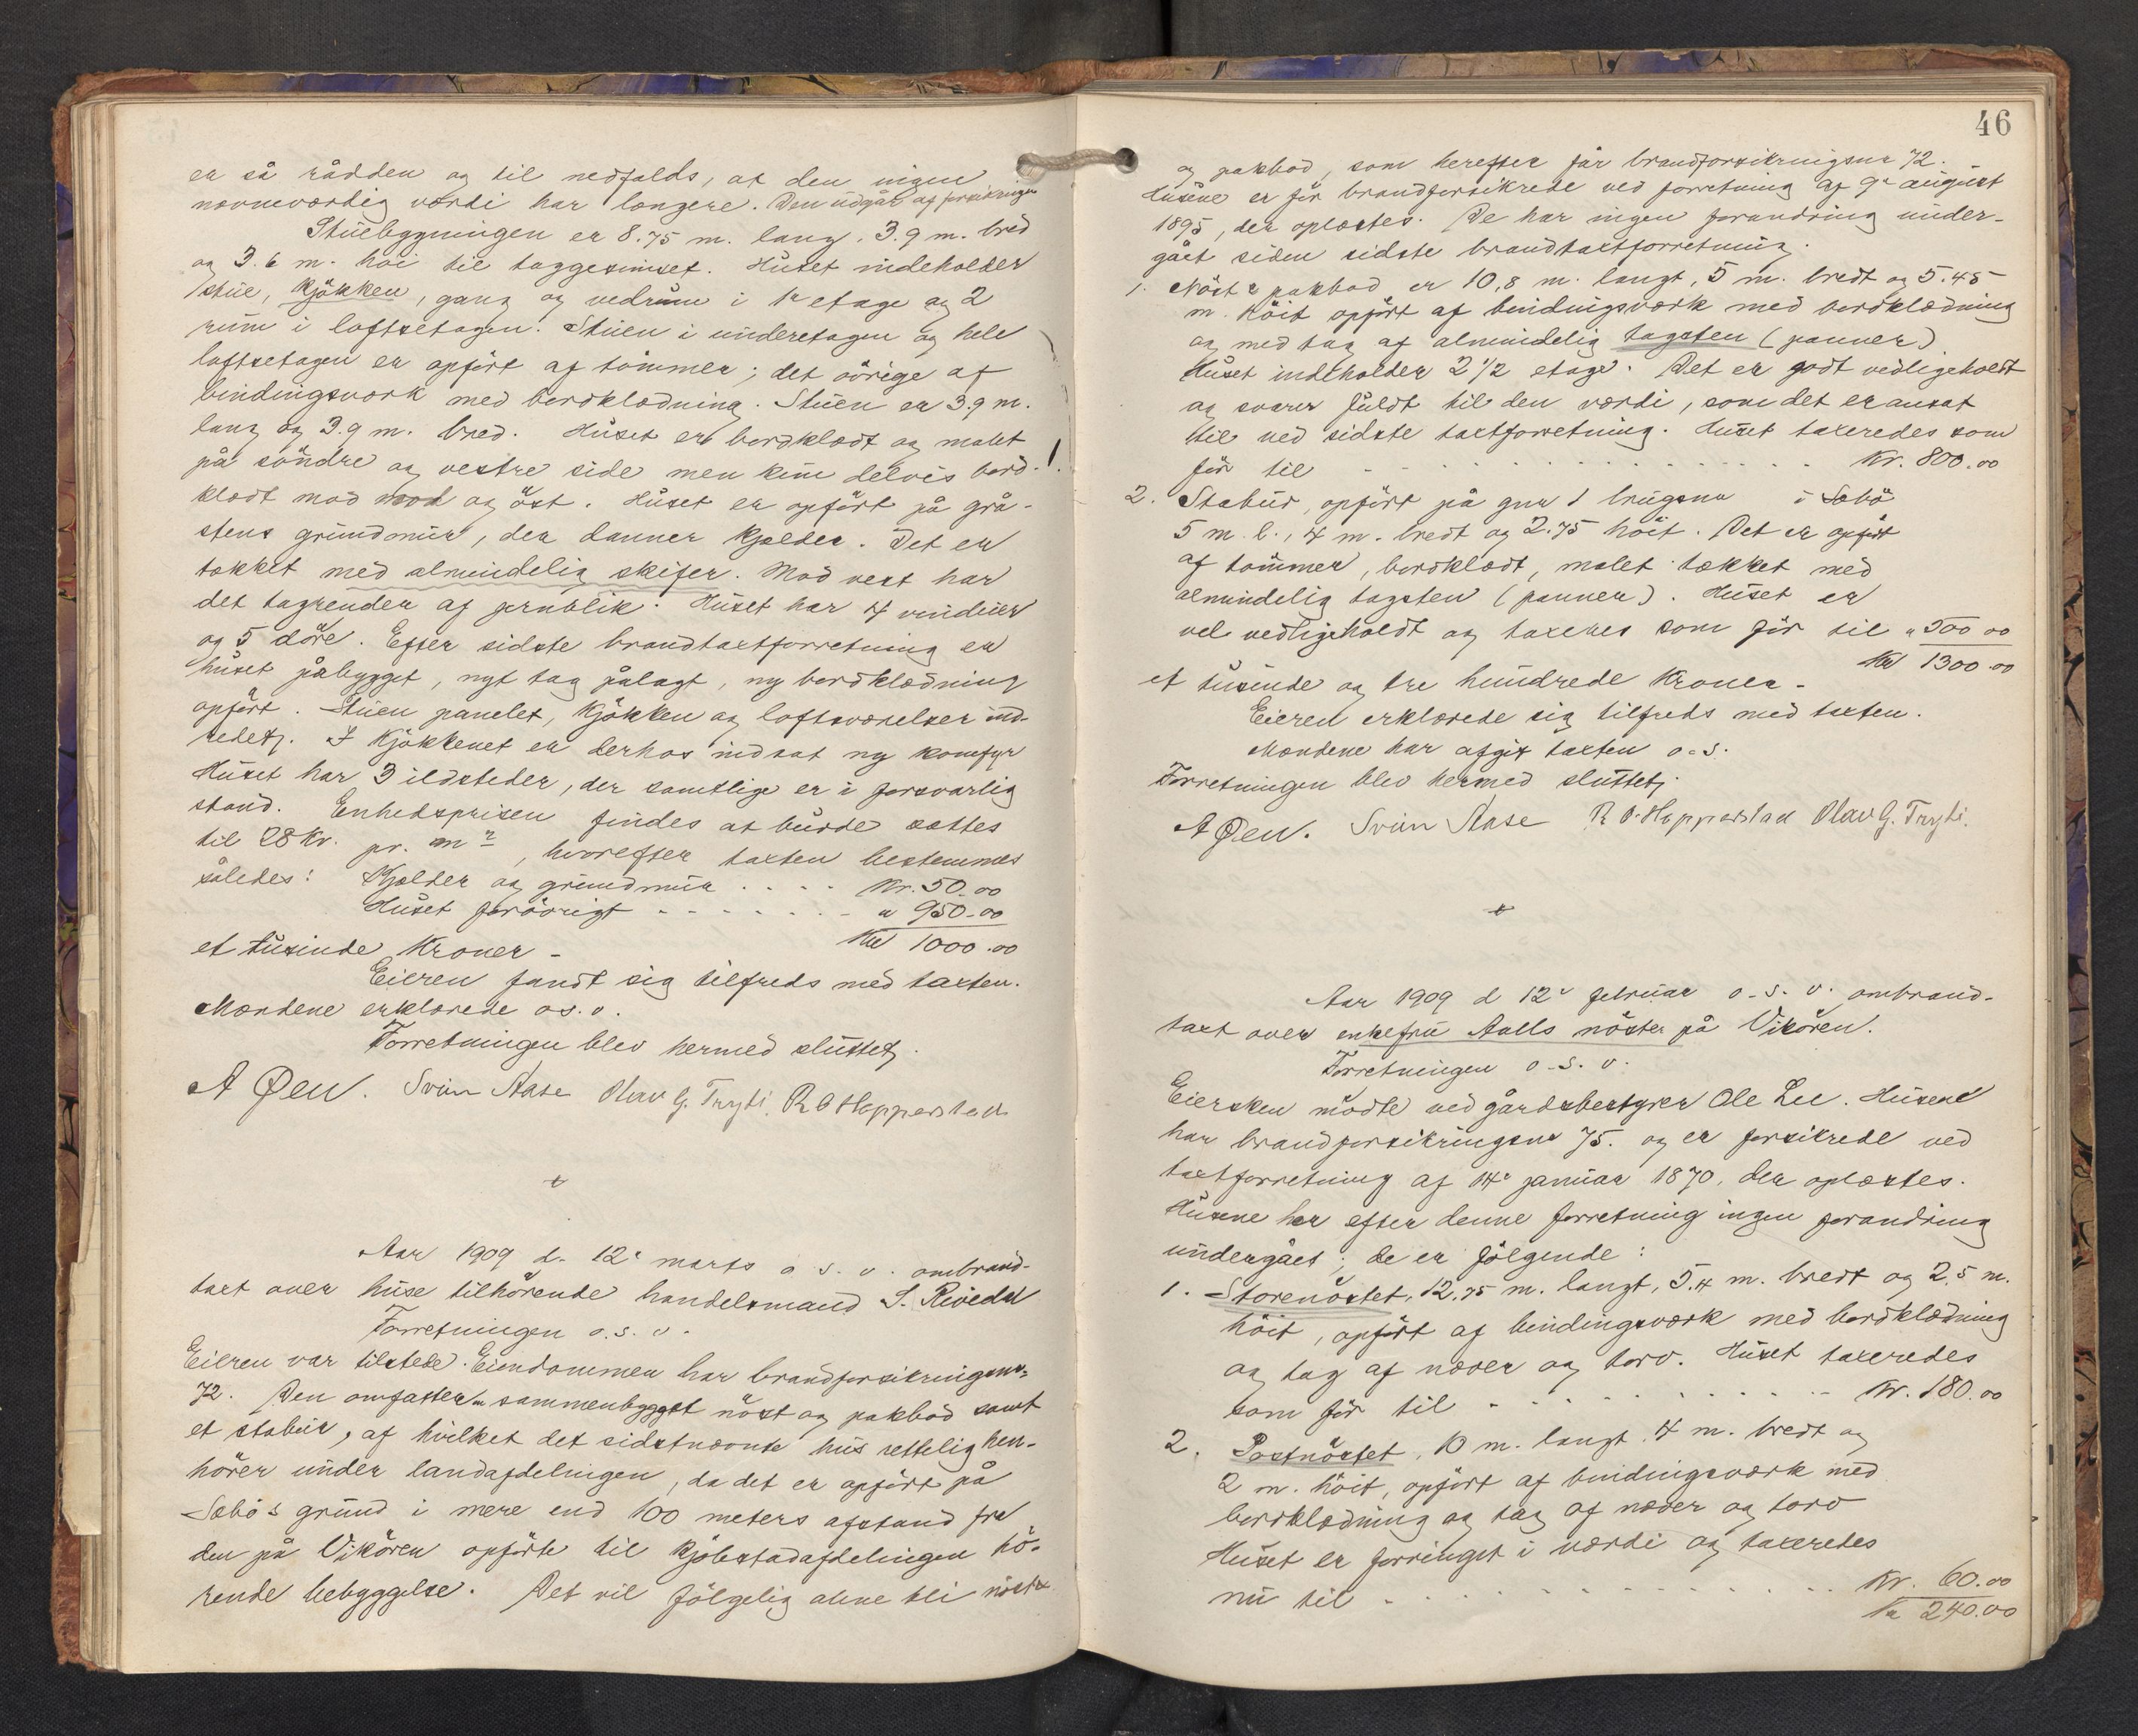 er så rådden og til nedfalds, at den ingen
nævneværdig værdi har længere. Den udgår af forsikringen
Stuebygningen er 8.75 m. lang, 3.9 m. bred
og 3.6 m. höi til taggesimset. Huset indeholder
stue, kjökken, gang og vedrum i 1e etage og 2
rum i loftsetagen. Stuen i underetagen og hele
loftsetagen er opfört af tömmer; det övrige af
bindingsværk med bordklædning. Stuen er 3.9 m.
lang og 3.9 m. bred. Huset er bordklædt og malet
på söndre og vestre side men kun delvis bord-
klædt mod nord og öst. Huset er opfört på grå-
stens grundmur, der danner kjælder. Det er
tækket med almindelig skifer. Mod vest har
det tagrender af jernblik. Huset har 4 vinduer
og 5 döre. Efter sidste brandtaxtforretning er
huset påbygget, nyt tag pålagt, ny bordklædning
opfört. Stuen panelet, kjökken og loftsværelser ind-
redet. I kjökkenet er derhos indsat ny komfyr
Huset har 3 ildsteder, der samtlige er i forsvarlig
stand. Enhedsprisen findes at burde sættes
til 28 kr. pr. m2, hvorefter taxten bestemmes
således: Kjælder og grundmur . . . . Kr. 50.00
Huset forövrigt - - - - - - - " 950-00
et tusinde kroner - Kr 1000.00
Eieren fandt sig tilfreds med taxten.
Mændene erklærede o.s.v.
Forretningen blev hermed sluttet.
A Øen. Svein Aase Olav G. Tryti. R O Hopperstad
+
Aar 1909 d. 12e marts o s. v. ombrand-
taxt over huse tilhörende handelsmand S. Rivedal
Forretningen o.s.v.
Eieren var tilstede. Eiendommen har brandforsikringsnr.
72. Den omfatter sammenbygget nöst og pakbod samt
et stabur, af hvilket det sidstnævnte hus rettelig hen-
hörer under landafdelingen, da det er opfört på
Sæbö's grund i mere end 100 meters afstand fra
den på Vikören opförte til kjöbstadafdelingen hö-
rende bebyggelse. Det vil fölgelig alene bli nöst
46
og pakbod, som herefter får brandforsikringsnr 72.
Husene er för brandforsikrede ved forretning af 9e august
1895, der oplæstes. De har ingen forandring under-
gået siden sidste brandtaxtforretning.
1. Nöst & pakbod er 10,8 m. langt, 5 m. bredt og 5.45
m. höit opfört af bindingsværk med bordklædning
og med tag af almindelig tagsten (panner)
Huset indeholder 2 1/2 etage. Det er godt vedligeholdt
og svarer fuldt til den værdi, som det er ansat
til ved sidste taxtforretning. Huset taxeredes som
för til - - - - - - - Kr. 800.00
2. Stabur, opfört på gnr 1 brugsnr i Sæbö
5 m. l., 4 m. bredt og 2.75 höit. Det er opfört
af tömmer, bordklædt, malet tækket med
almindelig tagsten (panner). Huset er
vel vedligeholdt og taxeres som för til " 500 00
Kr 1300.00
et tusinde og tre hundrede kroner-
Eieren erklærede sig tilfreds med taxten.
Mændene har afgit taxten o.s.
Forretningen blev hermed sluttet.
A Øen. Svein Aase R O. Hopperstad Olav G. Tryti.
+
Aar 1909 d 12e februar o-s.v. ombrand-
taxt over enkefru Aalls nöster på Vikören.
Forretningen o-s.v.
Eiersken mödte ved gårdsbestyrer Ole Lee. Husene
har brandforsikringsnr 75. og er forsikrede ved
taxtforretning af 14e januar 1870, der oplæstes.
Husene har efter denne forretning ingen forandring
undergået; de er fölgende:
1. Storenöstet, 12.75 m. langt, 5.4 m. bredt og 2,5 m.
höit, opfört af bindingsværk med bordklædning
og tag af næver og torv. Huset taxeredes
som för til - - - - - - - Kr. 180.00
2. Postnöstet, 10 m. langt. 4 m. bredt og
2 m. höit, opfört af bindingsværk med
bordklædning og tag af næver og torv
Huset er forringet i værdi og taxeredes
nu til - - - - - - - Kr. 60.00
Kr 240.00